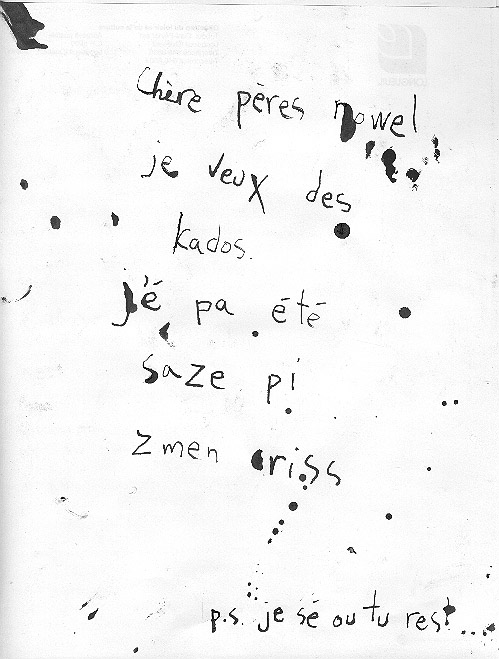 Chère pères nowel
je veux des
kados.
j'é pa été
saze pi
z men criss
p.s. je sé ou tu rest...